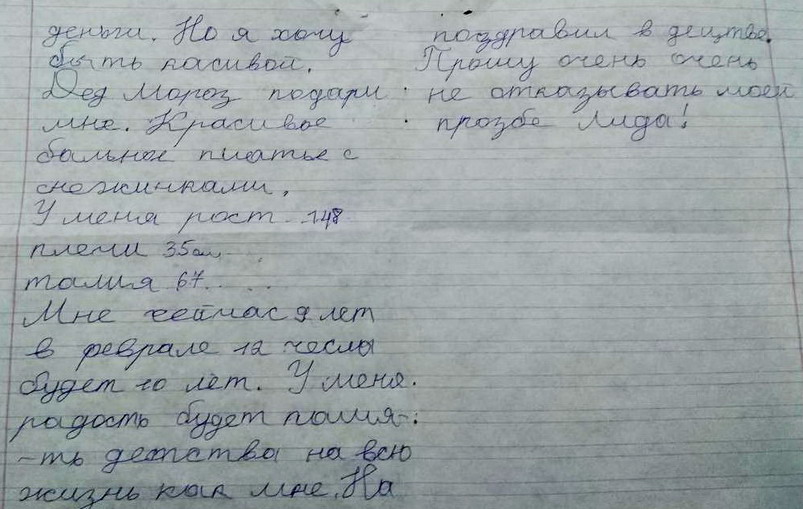 деньги. Но я хочу
быть касивой.
Дед Мороз подари
мне. Красивое
бальное платье с
снежинками.
У меня рост 148
плечи 35см
талия 67
Мне сейчас 9 лет
в феврале 12 чеслы
будет 10 лет. У меня
радость будет памя-
-ть детства на всю
жизнь как мне. На
поздравил в децтве.
Прошу очень очень
не отказывать моей
прозбе Лида!